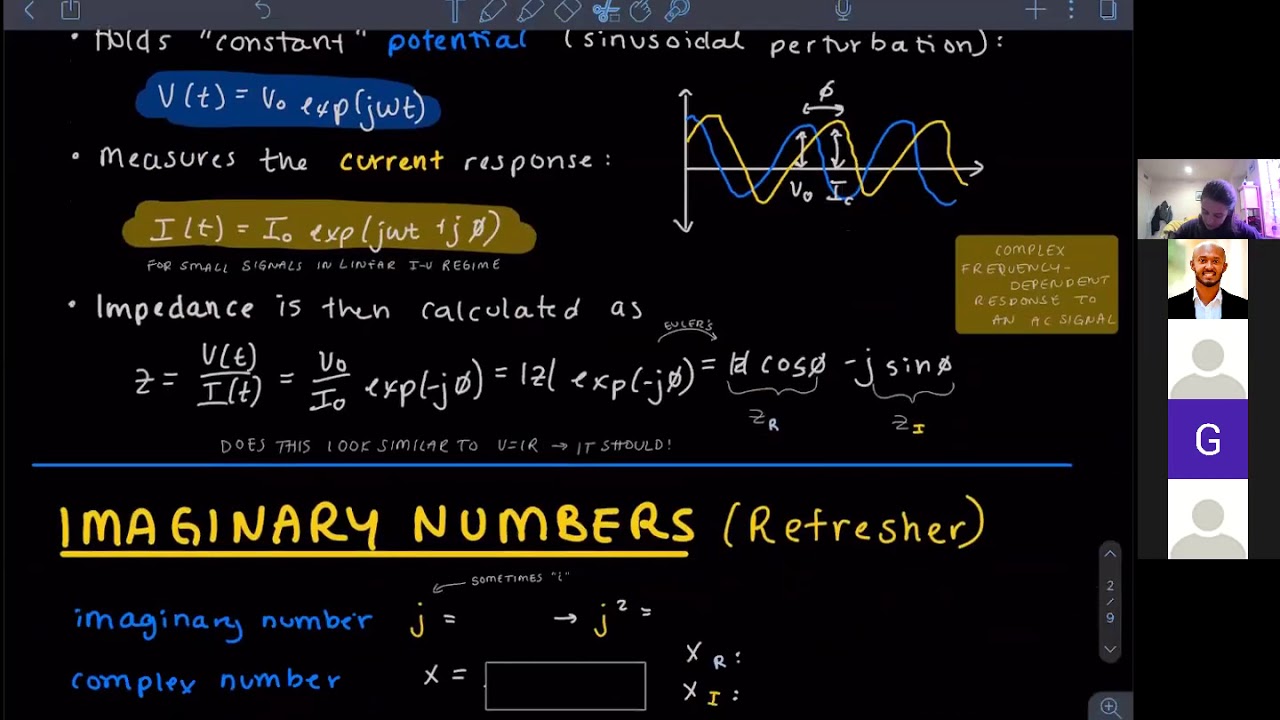 • Holds "constant" potential (sinusoidal perturbation):
V(t) = V₀ exp(jωt)
ϕ
V₀ I₀
• Measures the current response:
I(t) = I₀ exp(jωt + jϕ)
FOR SMALL SIGNALS IN LINEAR I-V REGIME
COMPLEX
FREQUENCY-
DEPENDENT
RESPONSE TO
AN AC SIGNAL
• Impedance is then calculated as
EULER'S
Z = V(t)/I(t) = V₀/I₀ exp(-jϕ) = |Z| exp(-jϕ) = |Z| cosϕ - j sinϕ
Z_R Z_I
DOES THIS LOOK SIMILAR TO V=IR → IT SHOULD!
G
IMAGINARY NUMBERS (Refresher)
SOMETIMES "i"
imaginary number j = → j² =
complex number x =
X_R:
X_I:
2
/
9